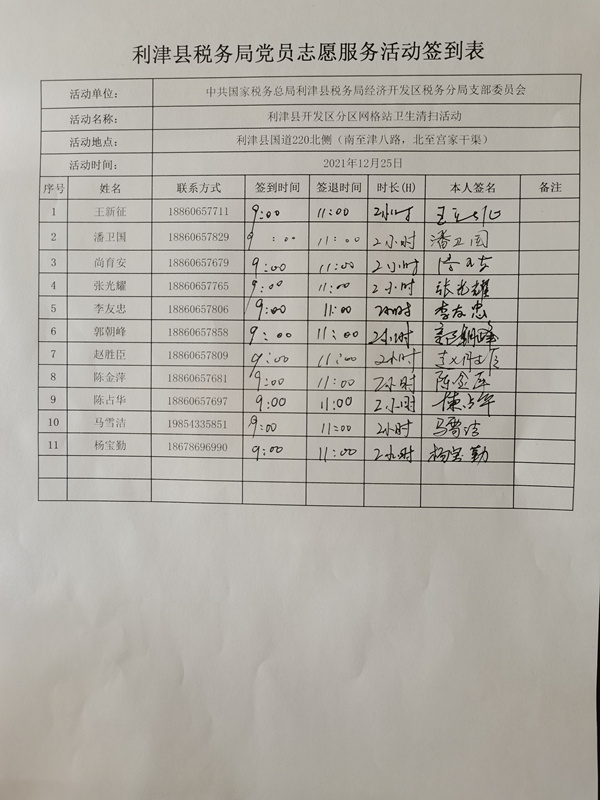 利津县税务局党员志愿服务活动签到表
活动单位： 中共国家税务总局利津县税务局经济开发区税务分局支部委员会
活动名称： 利津县开发区分区网格站卫生清扫活动
活动地点： 利津县国道220北侧（南至津八路，北至宫家干渠）
活动时间： 2021年12月25日
序号 姓名 联系方式 签到时间 签退时间 时长(H) 本人签名 备注
1 王新征 18860657711 9:00 11:00 2小时
2 潘卫国 18860657829 9:00 11:00 2小时 潘卫国
3 尚育安 18860657679 9:00 11:00 2小时
4 张光耀 18860657765 9:00 11:00 2小时 张光耀
5 李友忠 18860657806 9:00 11:00 2小时 李友忠
6 郭朝峰 18860657858 9:00 11:00 2小时 郭朝峰
7 赵胜臣 18860657809 9:00 11:00 2小时
8 陈金萍 18860657681 9:00 11:00 2小时 陈金萍
9 陈占华 18860657697 9:00 11:00 2小时 陈占华
10 马雪洁 19854335851 9:00 11:00 2小时 马雪洁
11 杨宝勤 18678696990 9:00 11:00 2小时 杨宝勤